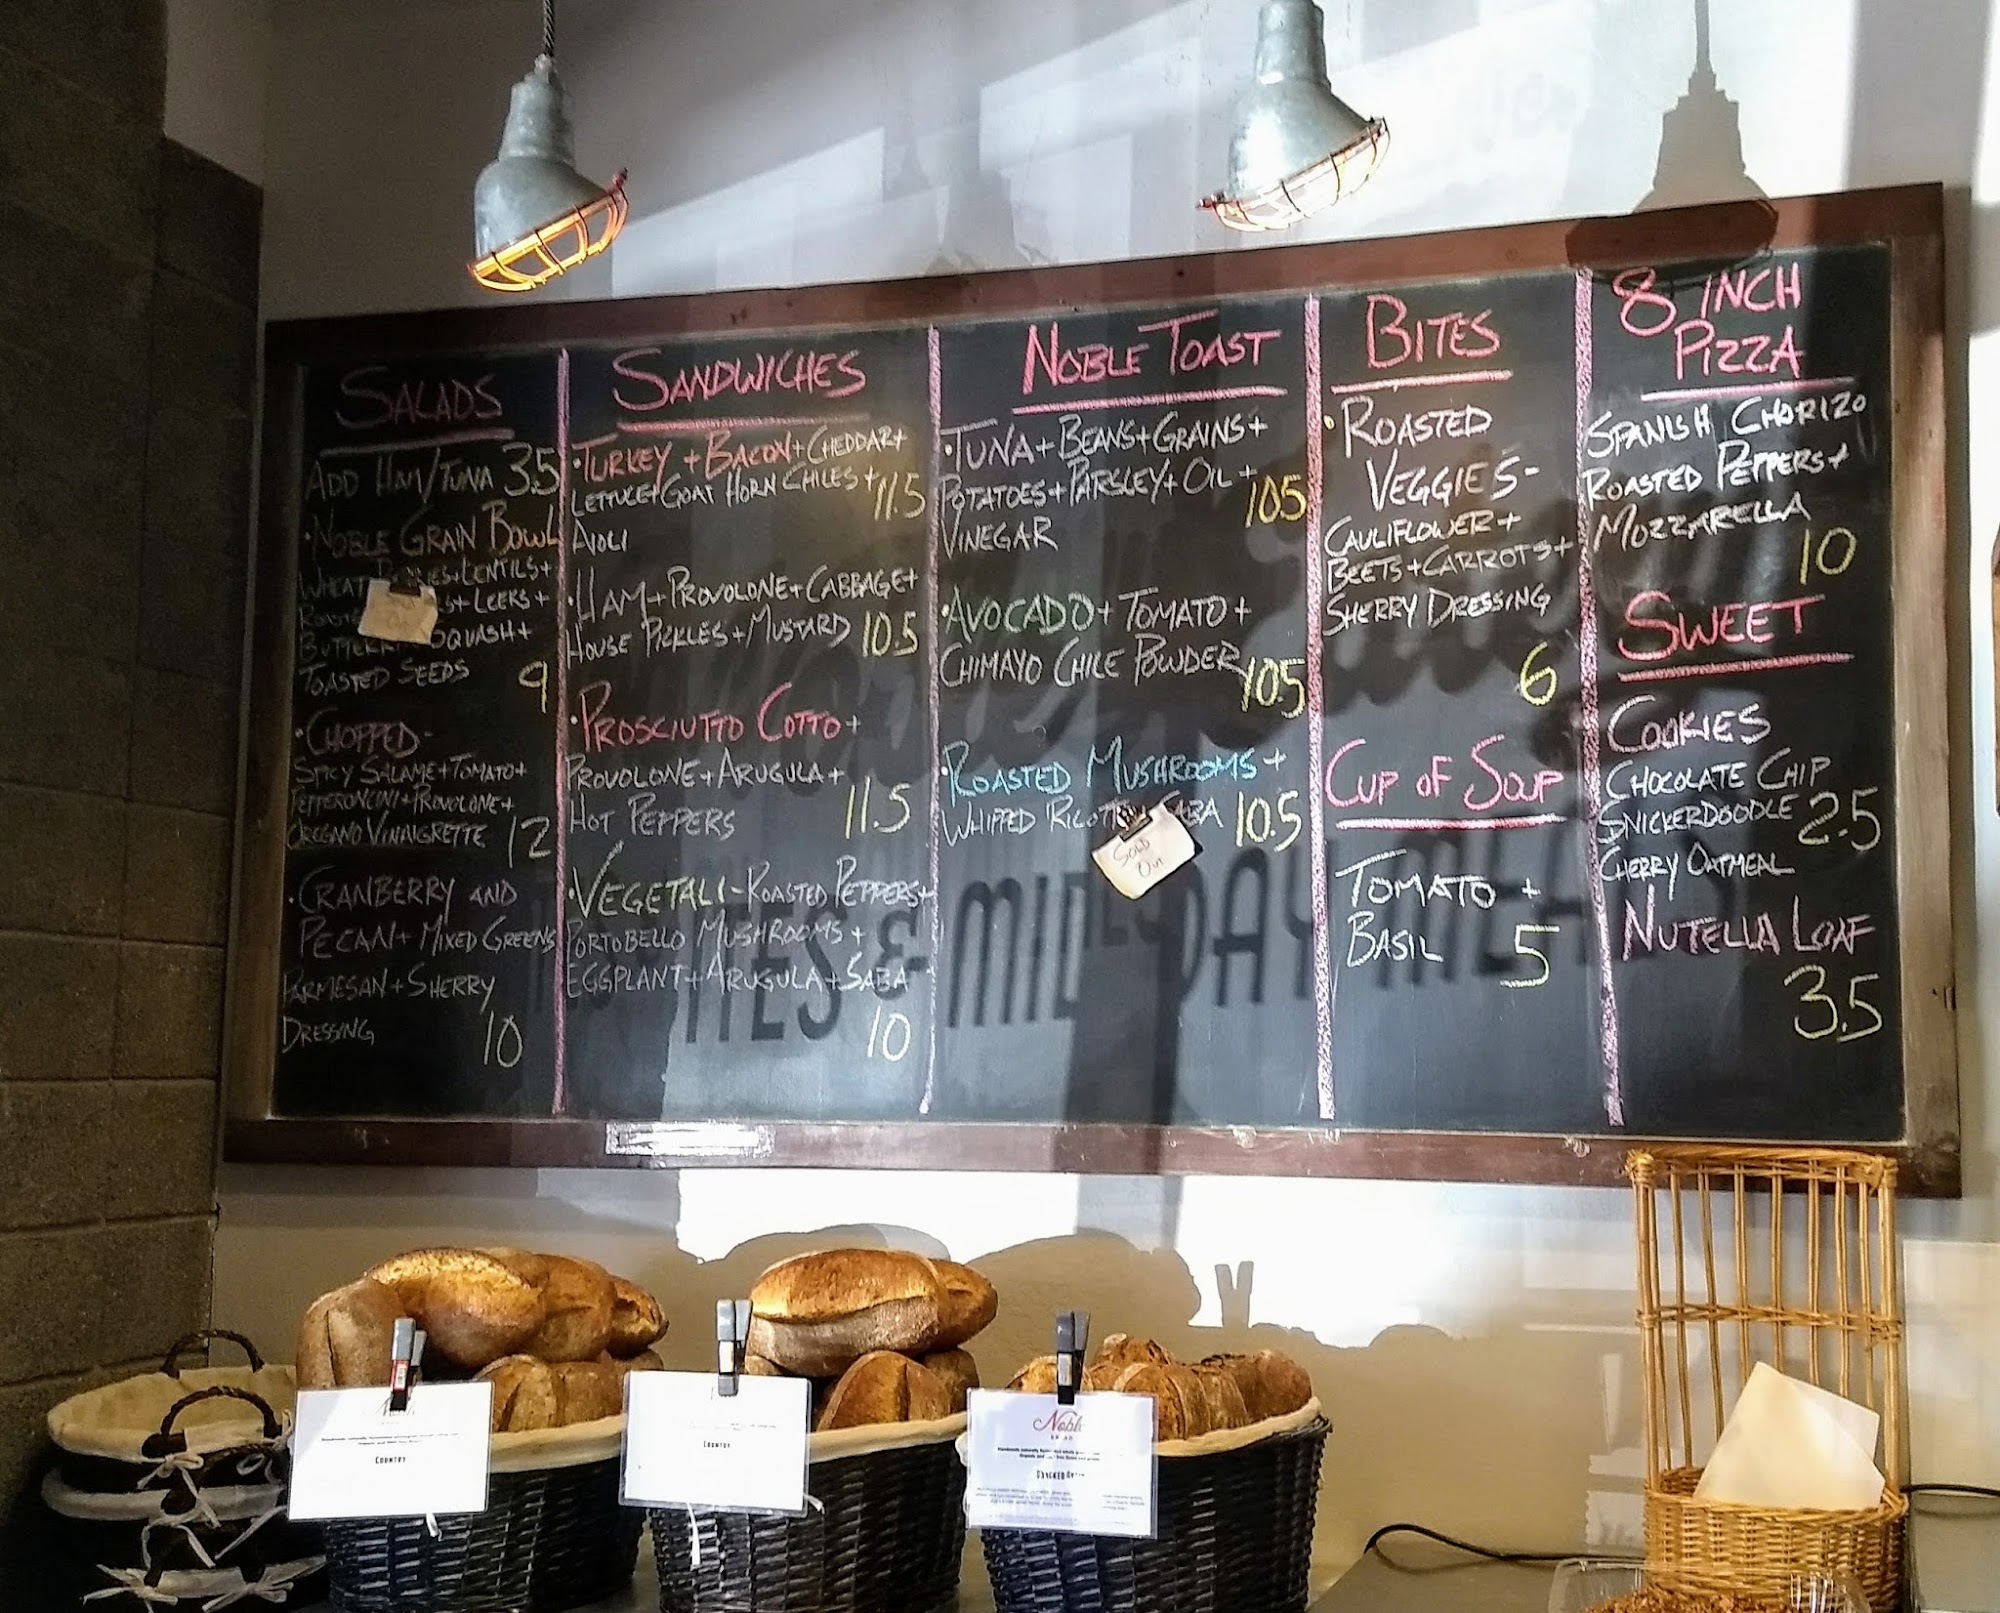 SALADS
ADD HAM/TUNA 3.5
• NOBLE GRAIN BOWL
WHEAT LENTILS+
LEEKS+
SQUASH+
TOASTED SEEDS 9
• CHOPPED-
SPICY SALAME+TOMATO+
PEPPERONCINI+PROVOLONE+
OREGANO VINAIGRETTE 12
• CRANBERRY AND
PECAN+ MIXED GREENS
PARMESAN+SHERRY
DRESSING 10
SANDWICHES
• TURKEY + BACON+CHEDDAR+
LETTUCE+GOAT HORN CHILES+ 11.5
AIOLI
• HAM+PROVOLONE+CABBAGE+
HOUSE PICKLES+MUSTARD 10.5
• PROSCIUTTO COTTO+
PROVOLONE+ARUGULA+
HOT PEPPERS 11.5
• VEGETALI-ROASTED PEPPERS+
PORTOBELLO MUSHROOMS+
EGGPLANT+ARUGULA+SABA
10
NOBLE TOAST
• TUNA+BEANS+GRAINS+
POTATOES+PARSLEY+OIL+ 10.5
VINEGAR
• AVOCADO+TOMATO+
CHIMAYO CHILE POWDER 10.5
• ROASTED MUSHROOMS+
WHIPPED RICOTTA SABA 10.5
SOLD
OUT
BITES
• ROASTED
VEGGIES-
CAULIFLOWER+
BEETS+CARROTS+
SHERRY DRESSING
6
CUP OF SOUP
TOMATO+
BASIL 5
8 INCH
PIZZA
SPANISH CHORIZO
ROASTED PEPPERS+
MOZZARELLA
10
SWEET
COOKIES
CHOCOLATE CHIP
SNICKERDOODLE 2.5
CHERRY OATMEAL
NUTELLA LOAF
3.5
& MIDDAY MEA
COUNTRY
COUNTRY
Noble
BREAD
CRACKED